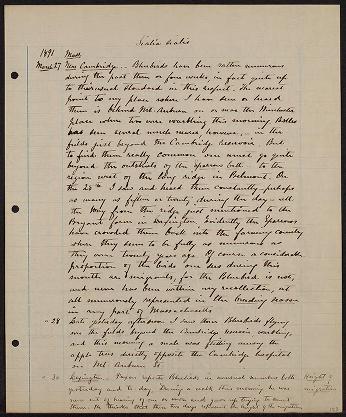 Sialia sialis
1891 Mass.
March 27 Near Cambridge. - Bluebirds have been rather numerous
during the past three or four weeks, in fact quite up
to the usual standard in this respect. The nearest
point to my place where I have seen or heard
them is behind Mt. Auburn on or near the Winchester
place where two were warbling this morning.
has been several much nearer, however, - in the
fields just beyond the Cambridge reservoir. But
to find them really common one must go quite
beyond the outskirts of the Sparrow belt to the
region west of the long ridge in Belmont. On
the 25th I saw and heard them constantly - perhaps
as many as fifteen or twenty, during the day - all
the way from the ridge just mentioned to the
Bryant farm in Lexington. Evidently the Sparrows
have crowded them back into the farming country
where they seem to be fully as numerous as
they were twenty years ago. Of course a considerable
proportion of the birds one sees during this
month are migrants, for the Bluebird is not,
and never has been within my recollection, at
all numerously represented in the breeding season
in any part of Massachusetts.
" 28 Late yesterday afternoon I saw three Bluebirds flying
over the fields beyond the Cambridge reservoir warbling,
and this morning a male was flitting among the
apple trees directly opposite the Cambridge hospital
on Mt. Auburn St.
" 30 Lexington. - Faxon reports Bluebirds in unusual numbers both
yesterday and to-day. During a walk this morning he was
never out of hearing of one or more and gave up trying to count
them. He thinks that these two days represent the height of the migration
Height of
migration